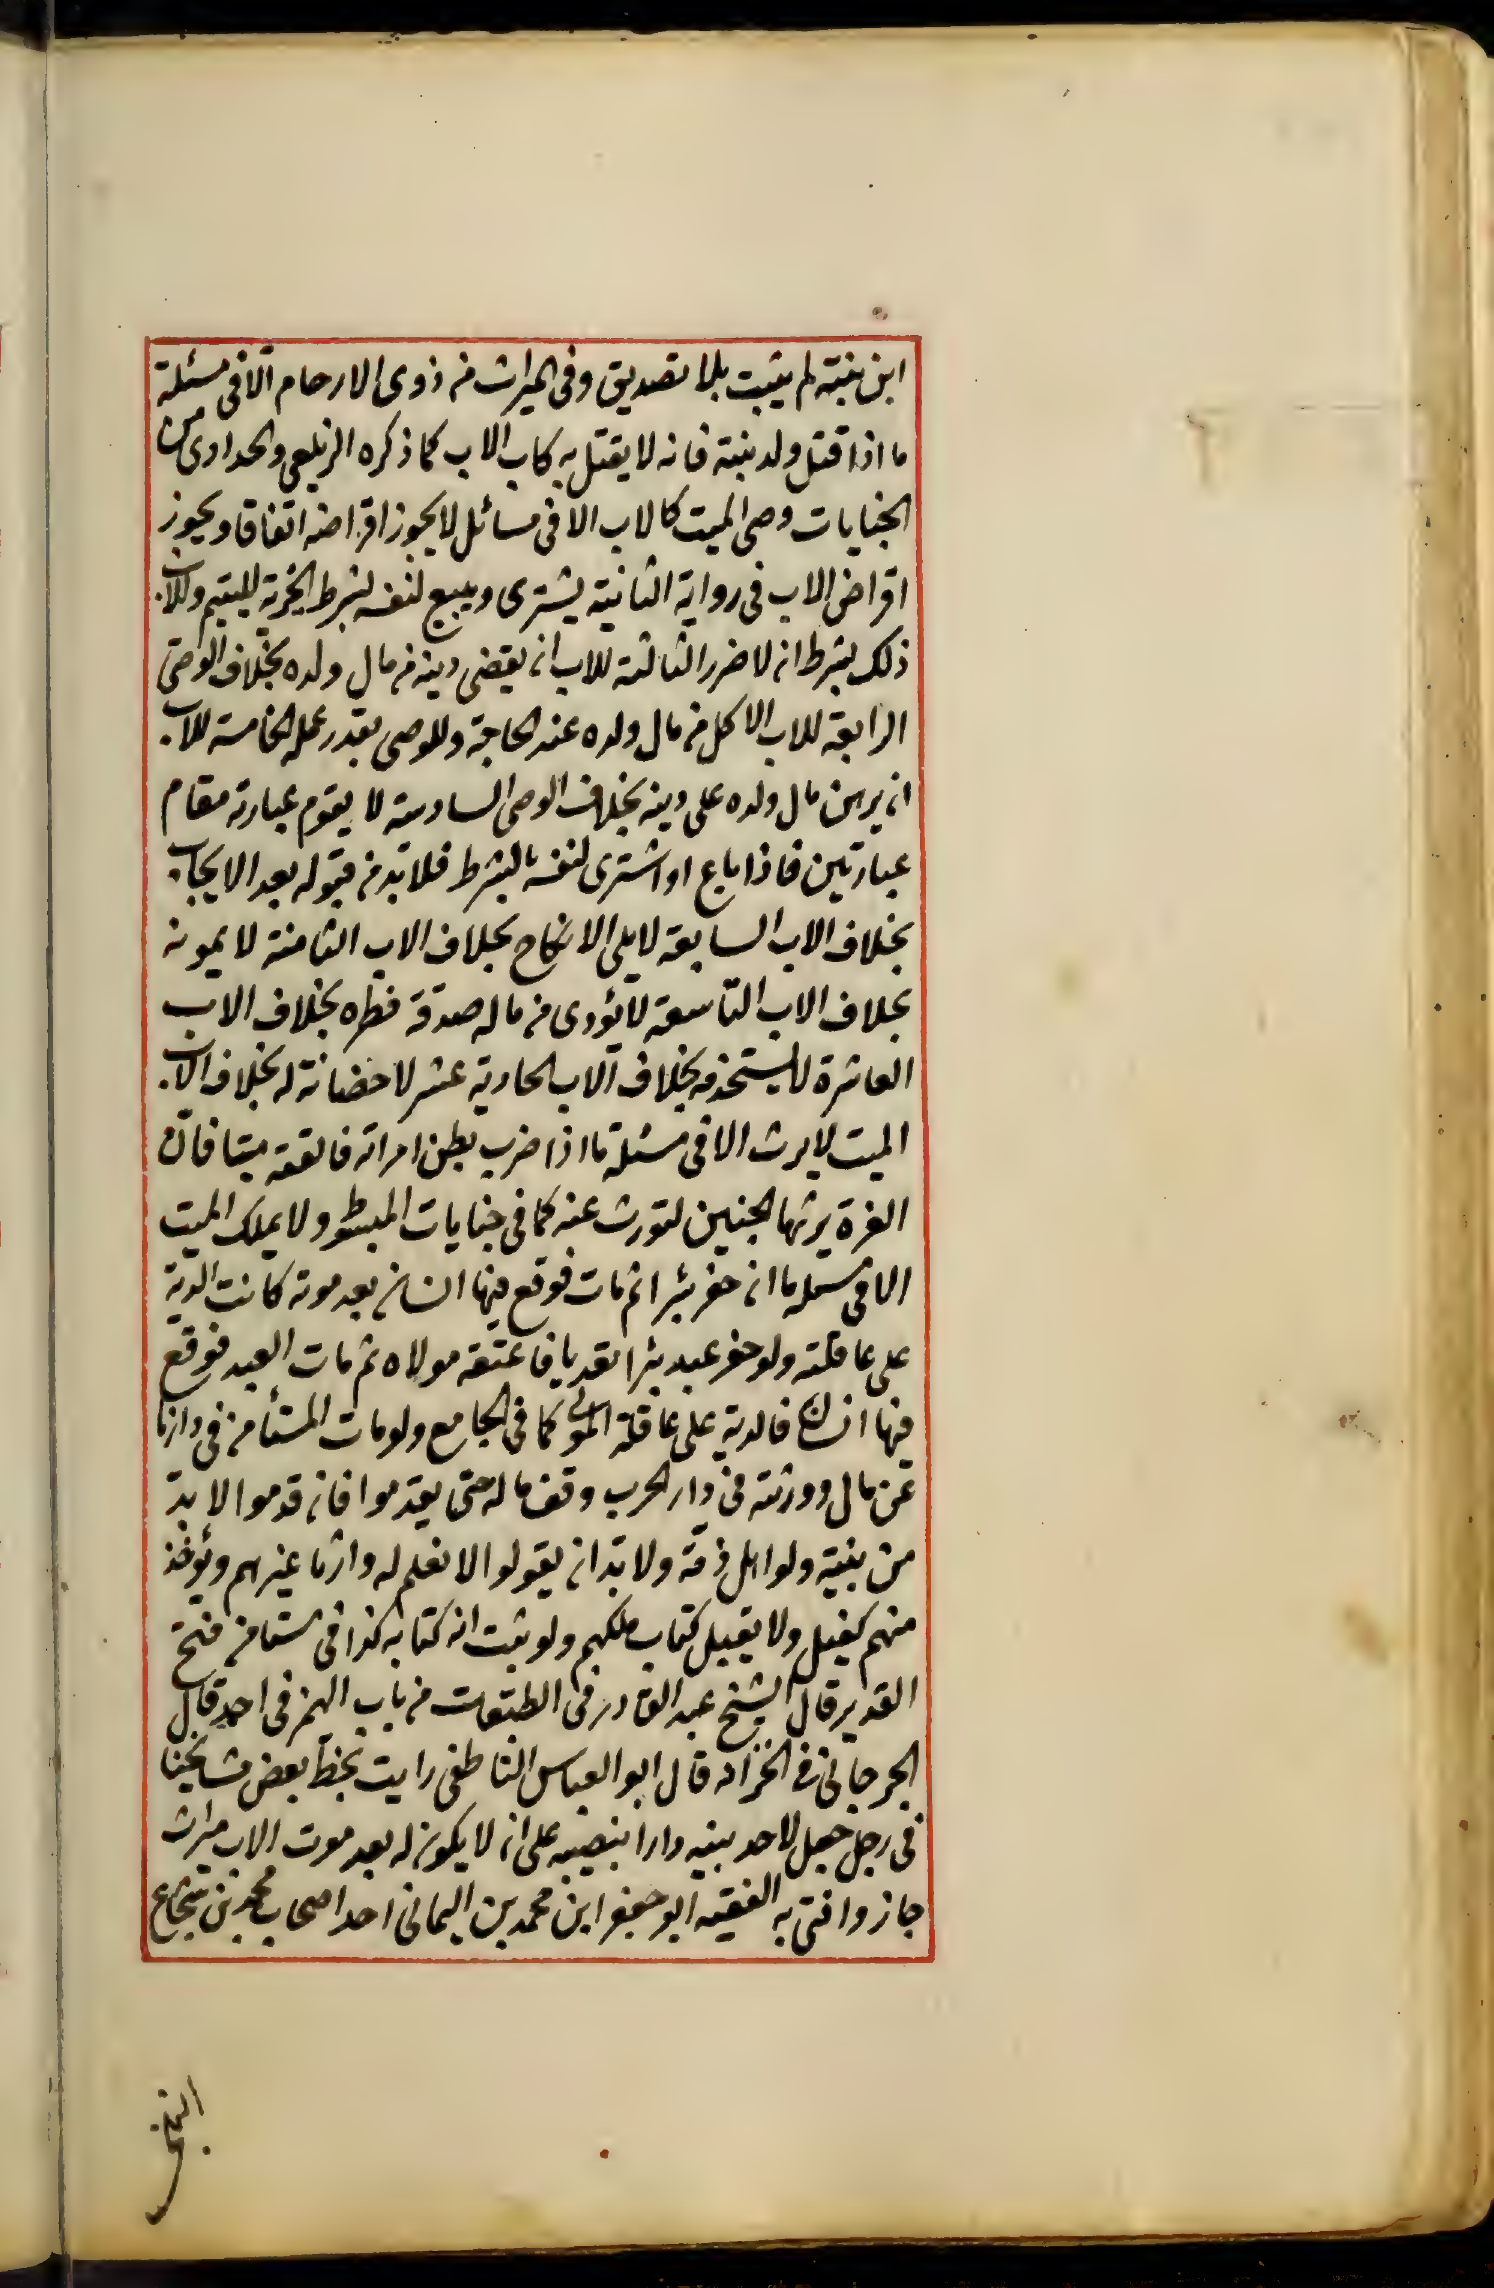 ابن بنته لم يثبت بلا تصديق وفى الميراث من ذوى الارحام الا فى مسئلة
ما اذا قتل ولد بنته فانه لا يقتل به كاب الاب كما ذكره الزيلعى والحدادى من
الجنايات وصى الميت كالاب الا فى مسائل لا يجوز اقراضه اتفاقا ويجوز
اقراض الاب فى رواية الثانية يشترى ويبيع لنفسه بشرط الخيرية لليتيم وللاب
ذلك بشرط ان لا ضرر الثالثة للاب ان يقضى دينه من مال ولده بخلاف الوصى
الرابعة للاب الاكل من مال ولده عند الحاجة وللوصى بقدر عمله الخامسة للاب
ان يرهن مال ولده على دينه بخلاف الوصى السادسة لا يقوم عبارته مقام
عبارتين فاذا باع او اشترى لنفسه بالشرط فلا بد من قبوله بعد الايجاب
بخلاف الاب السابعة لا يلى الانكاح بخلاف الاب الثامنة لا يمونه
بخلاف الاب التاسعة لا يؤدى من ماله صدقة فطره بخلاف الاب
العاشرة لا يستخدمه بخلاف الاب الحادية عشر لا حضانة له بخلاف الاب
الميت لا يرث الا فى مسئلة ما اذا ضرب بطن امراته فالقته ميتا فان
الغرة يرثها الجنين لتورث عنه كما فى جنايات المبسوط ولا يملك الميت
الا فى مسئله ما ان حفر بئرا ثم مات فوقع فيها انسان بعد موته كانت الدية
على عاقلته ولو حفر عبد بئرا تعديا فاعتقه مولاه ثم مات العبد فوقع
فيها انسان فالدية على عاقلة المولى كما فى الجامع ولو مات المستأمن فى دارنا
عن مال وورثته فى دار الحرب وقف ماله حتى يقدموا فان قدموا لا بد
من بينة ولو اهل ذمة ولا بد ان يقولوا لا نعلم له وارثا غيرهم ويؤخذ
منهم كفيل ولا يقبل كتاب ملكهم ولو ثبت انه كتابه كذا فى مستامن فتح
القدير قال الشيخ عبد القادر فى الطبقات من باب الهمز فى احمد قال
الجرجانى فى الخزانه قال ابو العباس الناطفى رايت بخط بعض مشايخنا
فى رجل جعل لاحد بنيه دارا بنصيبه على ان لا يكون له بعد موت الاب ميراث
جاز وافتى به الفقيه ابو جعفر ابن محمد بن اليمانى احد اصحاب محمد بن شجاع
البلخى